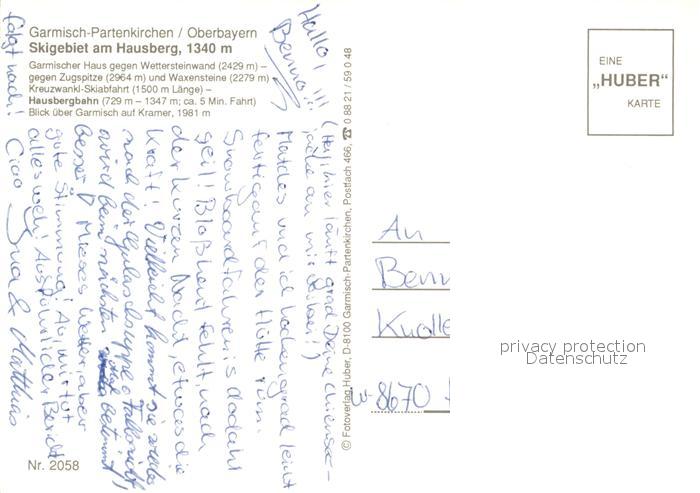 Garmisch-Partenkirchen / Oberbayern
Skigebiet am Hausberg, 1340 m
Garmischer Haus gegen Wettersteinwand (2429 m) –
gegen Zugspitze (2964 m) und Waxensteine (2279 m)
Kreuzwankl-Skiabfahrt (1500 m Länge) –
Hausbergbahn (729 m – 1347 m; ca. 5 Min. Fahrt)
Blick über Garmisch auf Kramer, 1981 m
Hallo!!!
Benno!!!
(Hey, hier läuft grad Deine Chiemsee-
jacke an mir vorbei!)
Matdes und ich hocken grad leicht
fertig auf der Hütte rum.
Snowboardfahren is do dahl
geil! Bloß heut fehlt, nach
der kurzen Nacht, etwas die
Kraft! Vielleicht kommt sie wieder
nach der Gulaschsuppe o.
wird beim nächsten
besser! Mieses Wetter, aber
gute Stimmung! Au, mir tut
alles weh! Ausführlicher Bericht
folgt nach!
Ciao
& Matthias
Nr. 2058
© Fotoverlag Huber, D-8100 Garmisch-Partenkirchen, Postfach 466, ☎ 0 88 21 / 59 0 48
EINE
„HUBER"
KARTE
An
Benn
Knolle
W-8670
privacy protection
Datenschutz